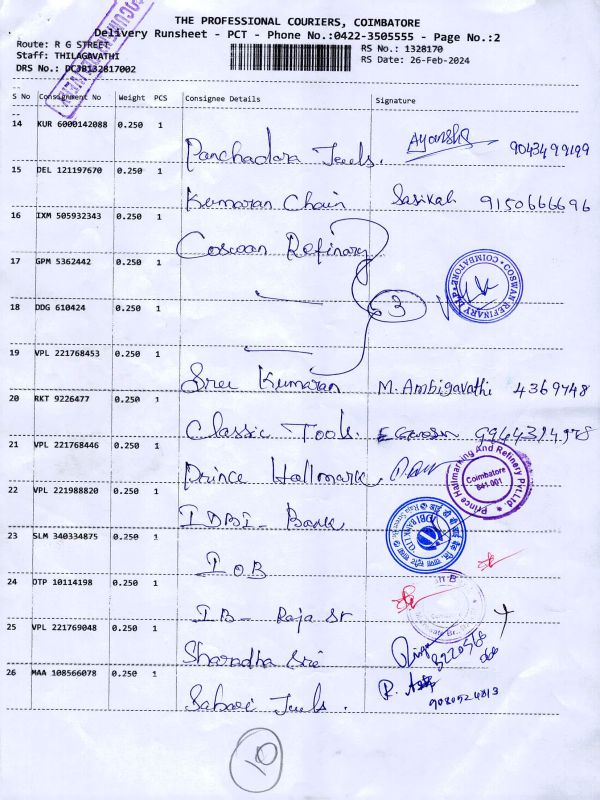 THE PROFESSIONAL COURIERS, COIMBATORE
Delivery Runsheet - PCT - Phone No.:0422-3505555 - Page No.:2
Route: R G STREET
RS No.: 1328170
Staff: THILAGAVATHI
RS Date: 26-Feb-2024
DRS No.: DCJB132817002
S No Consignment No Weight PCS Consignee Details Signature
14 KUR 6000142088 0.250 1
Panchadara Jewels. Ayansha 9043499199
15 DEL 121197670 0.250 1
Kumaran Chain Sasikala 9150666696
16 IXM 505932343 0.250 1
Coswan Refinary
17 GPM 5362442 0.250 1
COSWAN REFINARY LLP COIMBATORE
18 DDG 610424 0.250 1
3
19 VPL 221768453 0.250 1
Sree Kumaran M. Ambigavathi 4369748
20 RKT 9226477 0.250 1
Classic Tools.
21 VPL 221768446 0.250 1
Prince Hallmark
Prince Hallmarking And Refinery Pvt Ltd
Coimbatore
641 001
22 VPL 221988820 0.250 1
IDBI - Bank
23 SLM 340334875 0.250 1
IOB
24 DTP 10114198 0.250 1
IB - Raja St
25 VPL 221769048 0.250 1
Sharadha Sri
26 MAA 108566078 0.250 1
Sabari Jewels.
9080524813
10